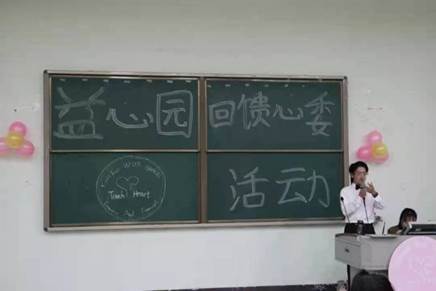 益心园 回馈心委
活动
Touch Heart